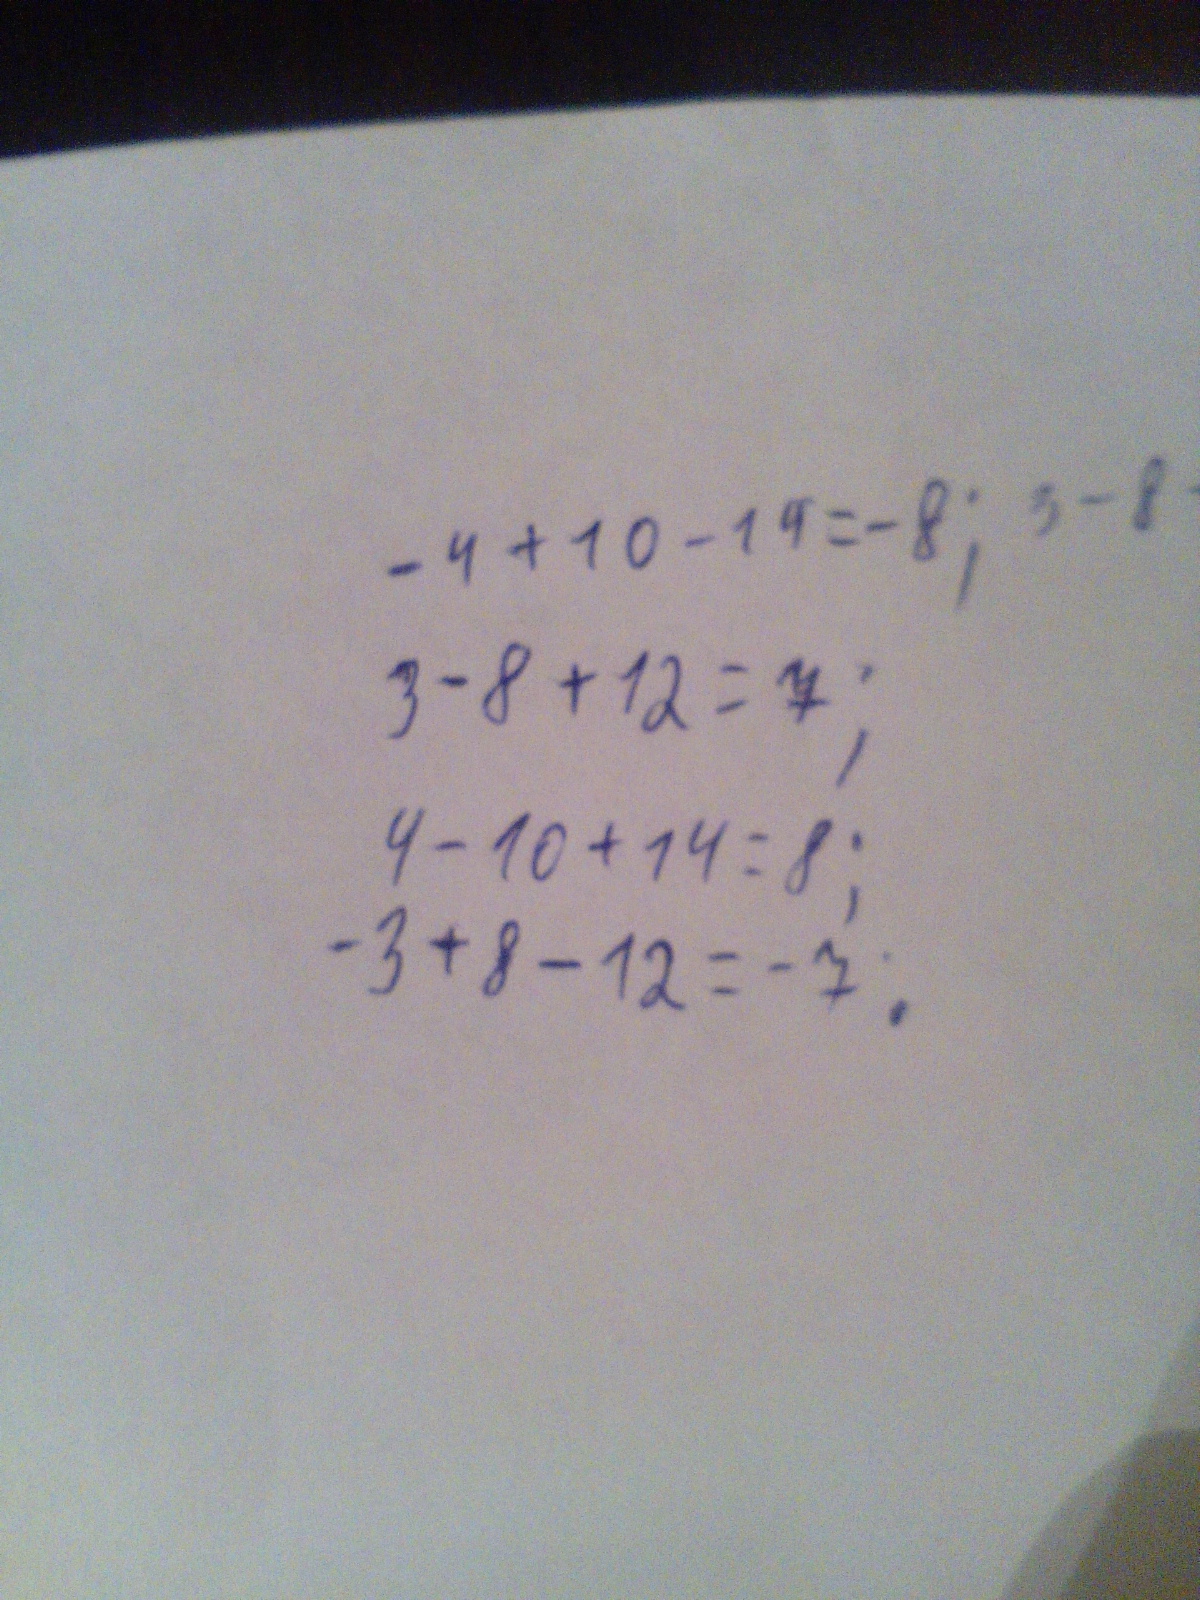 -4+10-14=-8; 3-8
3-8+12=7;
4-10+14=8;
-3+8-12=-7.